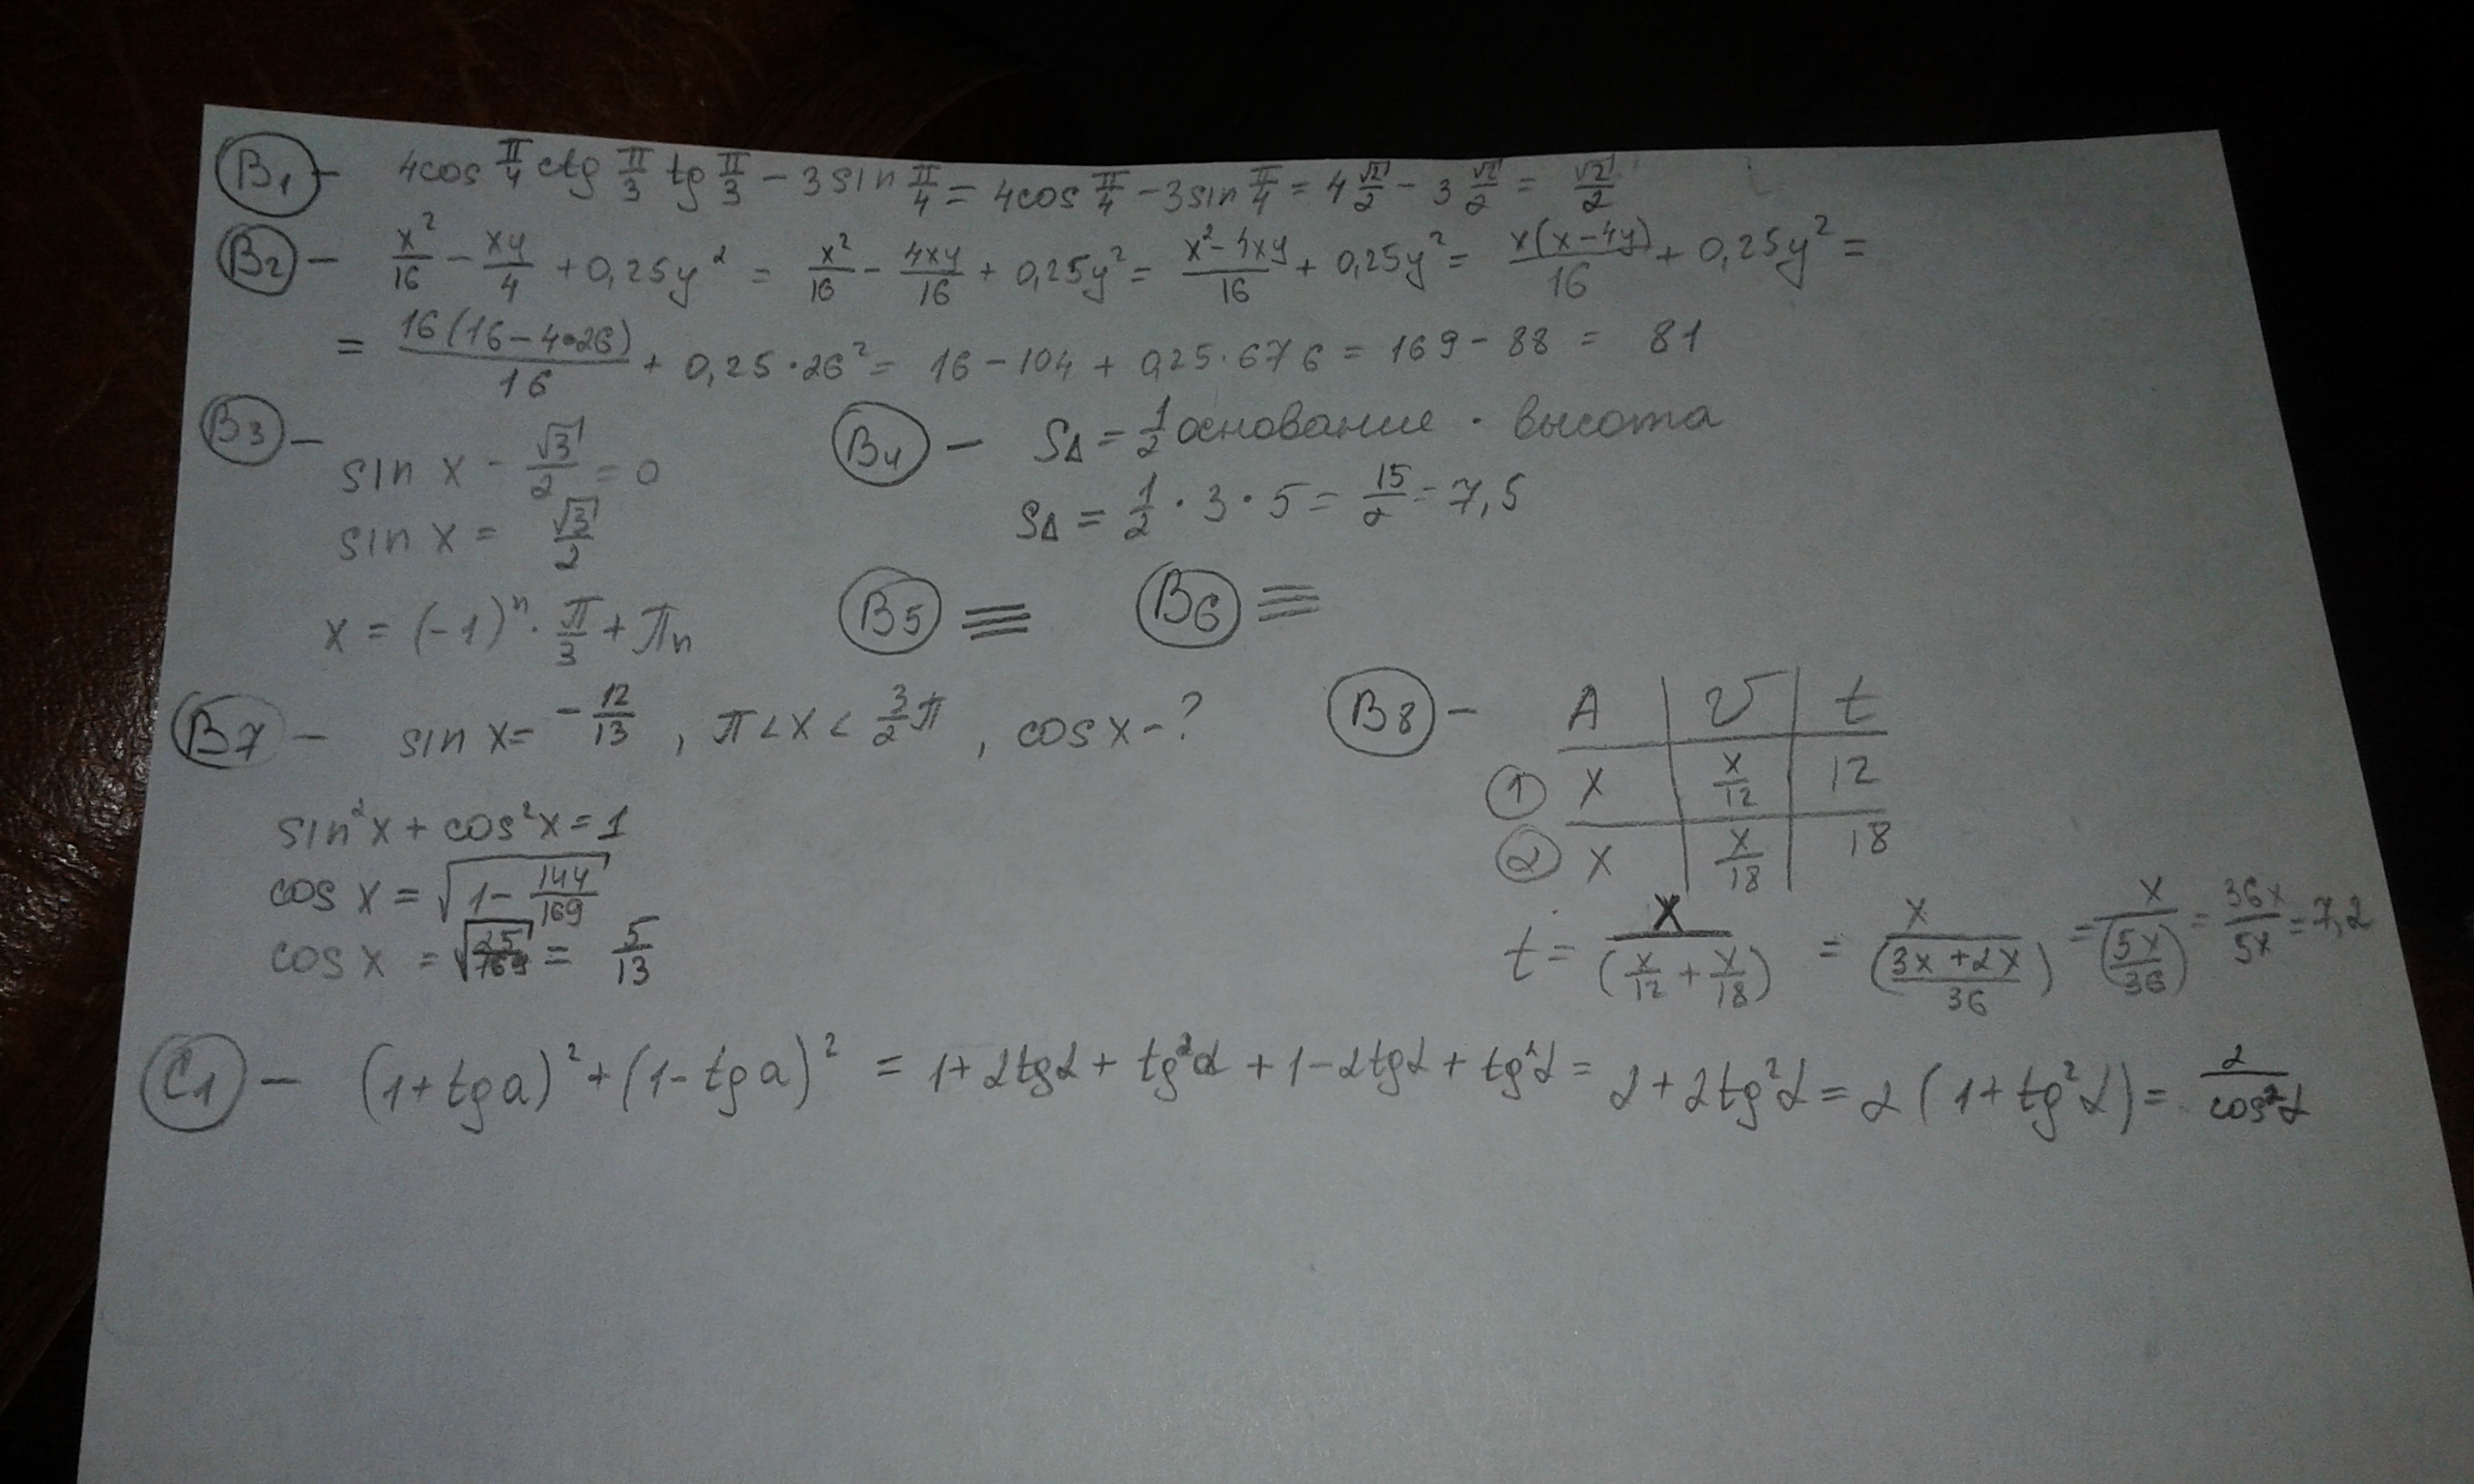 B1 – 4cos π/4 ctg π/3 tg π/3 − 3sin π/4 = 4cos π/4 − 3sin π/4 = 4 √2/2 − 3 √2/2 = √2/2
B2 – x²/16 − xy/4 + 0,25y² = x²/16 − 4xy/16 + 0,25y² = (x²−4xy)/16 + 0,25y² = x(x−4y)/16 + 0,25y² =
= 16(16−4•26)/16 + 0,25·26² = 16−104 + 0,25·676 = 169−88 = 81
B3 – sin x − √3/2 = 0
sin x = √3/2
x = (−1)ⁿ · π/3 + πn
B4 – S∆ = 1/2 основание · высота
S∆ = 1/2 · 3 · 5 = 15/2 = 7,5
B5 ≡ B6 ≡
B7 – sin x = −12/13, π < x < 3/2 π, cos x − ?
sin²x + cos²x = 1
cos x = √(1 − 144/169)
cos x = √(25/169) = 5/13
B8 – A | υ | t
① x | x/12 | 12
② x | x/18 | 18
t = x/(x/12 + x/18) = x/((3x+2x)/36) = x/(5x/36) = 36x/5x = 7,2
C1 – (1+tg a)² + (1−tg a)² = 1+2tgα + tg²α + 1−2tgα + tg²α = 2+2tg²α = 2(1+tg²α) = 2/cos²α